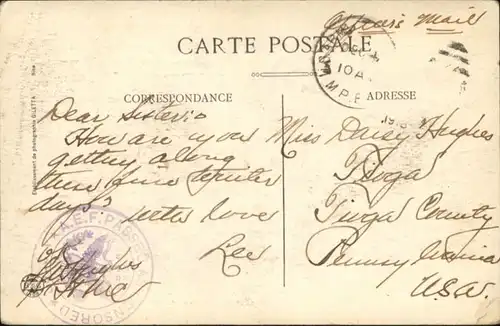 Officers Mail
CARTE POSTALE
DEC
10 A
M.P.E.
CORRESPONDANCE
ADRESSE
Etablissement de photographie GILETTA Nice
Dear Sister:
How are you
getting along
these fine winter
days?
with love
Lee
Miss Daisy Hughes
Tioga
Tioga County
Pennsylvania
USA.
A.E.F. PASSED
CENSORED